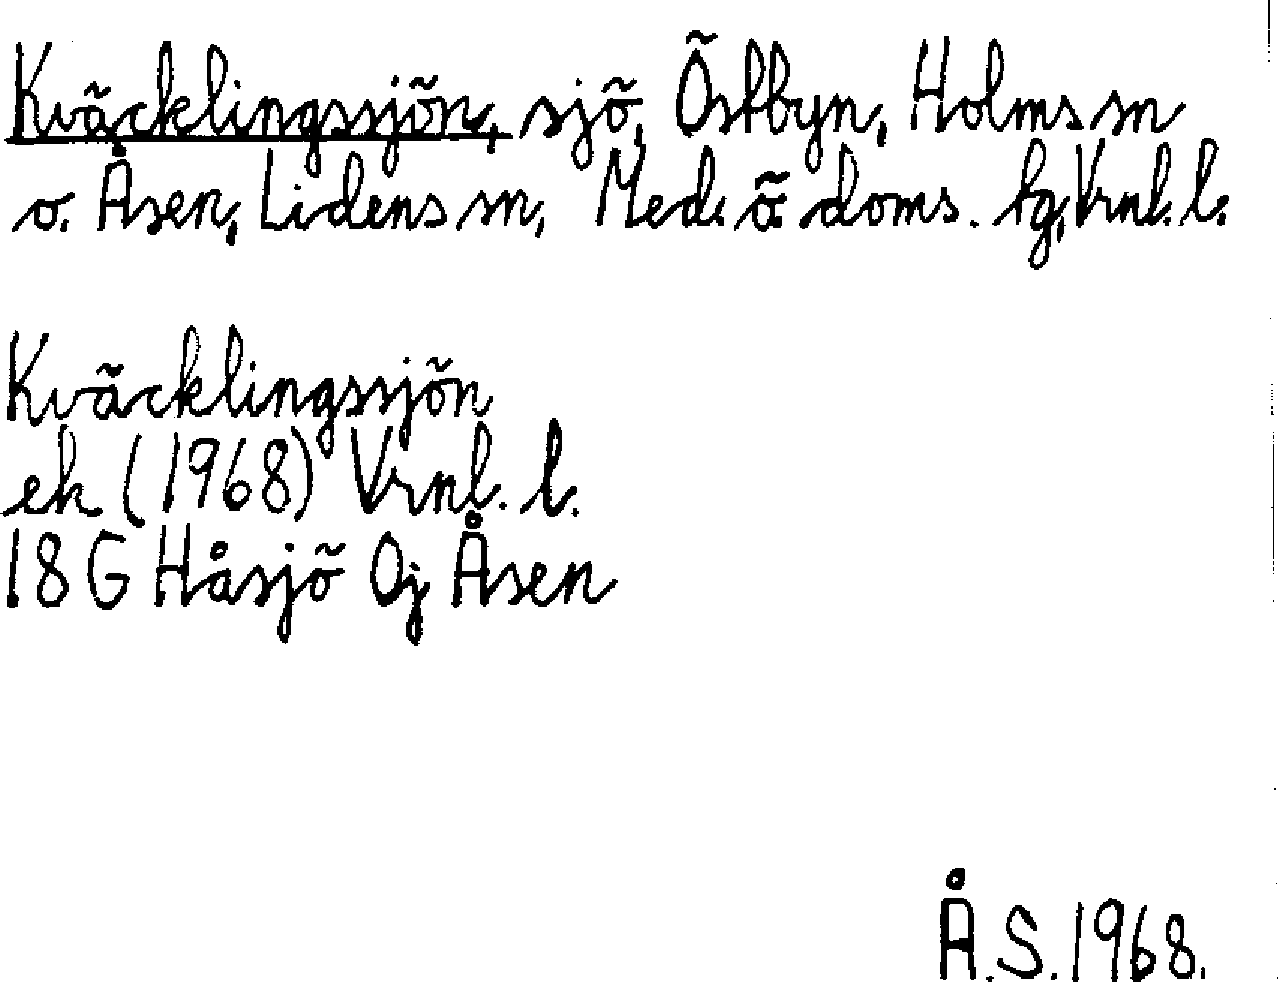 Kväcklingssjön, sjö, Östbyn, Holms sn
o. Åsen, Lidens sn, Med. ö. doms. tg, Vrnl. l.
Kväcklingssjön
ek (1968) Vrnl. l.
18 G Håsjö 0j Åsen
Å.S. 1968.